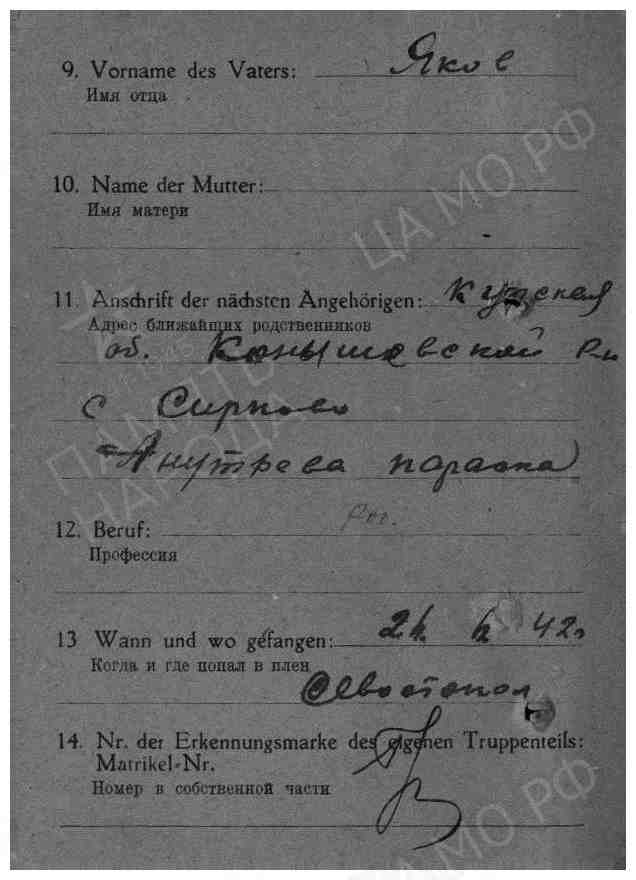 9. Vorname des Vaters: Яков
Имя отца
10. Name der Mutter:
Имя матери
11. Anschrift der nächsten Angehörigen: Курская
Адрес ближайщих родственников
об. Конышевской Рн
с
Анутрева
12. Beruf:
Профессия
13 Wann und wo gefangen: 42г
Когда и где попал в плен
Севостопол
14. Nr. der Erkennungsmarke des eigenen Truppenteils:
Matrikel-Nr.
Номер в собственной части
ЦА МО РФ
ПАМЯТЬ
НАРОДА
ЦА МО РФ